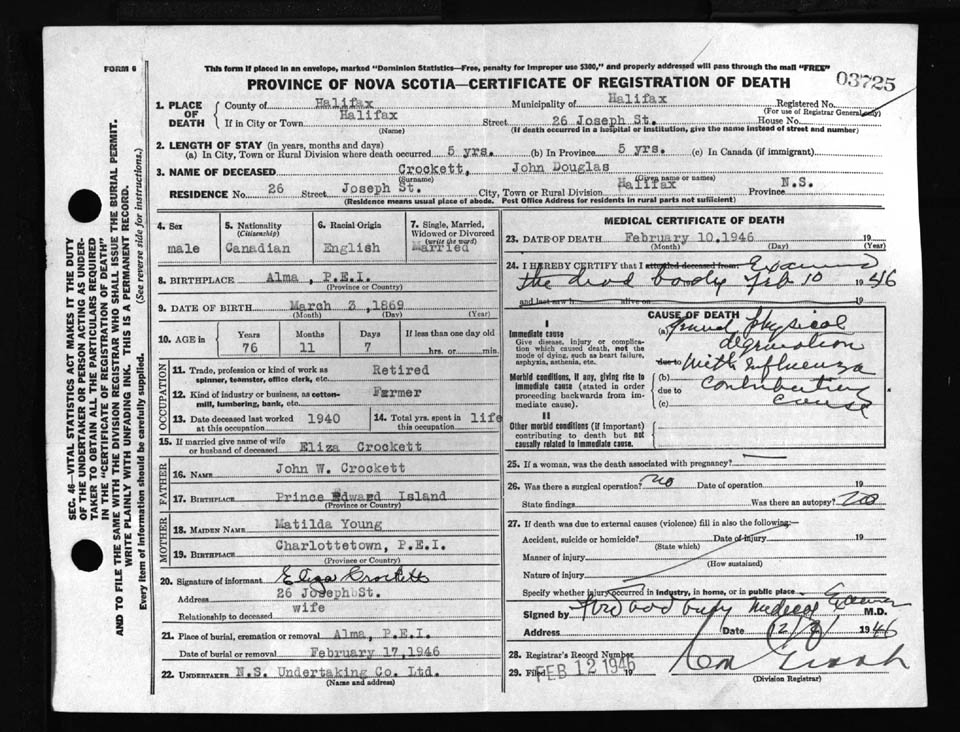 FORM 6
This form if placed in an envelope, marked "Dominion Statistics—Free, penalty for improper use $300," and properly addressed will pass through the mail "FREE"
PROVINCE OF NOVA SCOTIA—CERTIFICATE OF REGISTRATION OF DEATH
03725
SEC. 46—VITAL STATISTICS ACT MAKES IT THE DUTY
OF THE UNDERTAKER OR PERSON ACTING AS UNDER-
TAKER TO OBTAIN ALL THE PARTICULARS REQUIRED
IN THE "CERTIFICATE OF REGISTRATION OF DEATH"
AND TO FILE THE SAME WITH THE DIVISION REGISTRAR WHO SHALL ISSUE THE BURIAL PERMIT.
WRITE PLAINLY WITH UNFADING INK. THIS IS A PERMANENT RECORD.
Every item of information should be carefully supplied. (See reverse side for instructions.)
1. PLACE OF DEATH
County of Halifax Municipality of Halifax Registered No.
(For use of Registrar General only)
If in City or Town Halifax Street 26 Joseph St. House No.
(Name) (If death occurred in a hospital or institution, give the name instead of street and number)
2. LENGTH OF STAY (in years, months and days)
(a) In City, Town or Rural Division where death occurred 5 yrs. (b) In Province 5 yrs. (c) In Canada (if immigrant)
3. NAME OF DECEASED Crockett, John Douglas
(Surname) (Given name or names)
RESIDENCE No. 26 Street Joseph St. City, Town or Rural Division Halifax Province N.S.
(Residence means usual place of abode. Post Office Address for residents in rural parts not sufficient)
4. Sex 5. Nationality (Citizenship) 6. Racial Origin 7. Single, Married, Widowed or Divorced (write the word)
male Canadian English Married
8. BIRTHPLACE Alma, P.E.I.
(Province or Country)
9. DATE OF BIRTH March 3, 1869
(Month) (Day) (Year)
10. AGE in Years Months Days If less than one day old
76 11 7 hrs. or min.
OCCUPATION
11. Trade, profession or kind of work as spinner, teamster, office clerk, etc. Retired
12. Kind of industry or business, as cotton-mill, lumbering, bank, etc. Farmer
13. Date deceased last worked at this occupation 1940
14. Total yrs. spent in this occupation life
15. If married give name of wife or husband of deceased Eliza Crockett
FATHER
16. NAME John W. Crockett
17. BIRTHPLACE Prince Edward Island
(Province or Country)
MOTHER
18. MAIDEN NAME Matilda Young
19. BIRTHPLACE Charlottetown, P.E.I.
(Province or Country)
20. Signature of informant Eliza Crockett
Address 26 Joseph St.
Relationship to deceased wife
21. Place of burial, cremation or removal Alma, P.E.I.
Date of burial or removal February 17, 1946
22. UNDERTAKER N.S. Undertaking Co. Ltd.
(Name and address)
MEDICAL CERTIFICATE OF DEATH
23. DATE OF DEATH February 10, 1946 19
(Month) (Day) (Year)
24. I HEREBY CERTIFY that I attended deceased from Examined
the dead body Feb 10 1946
and last saw h alive on 19
CAUSE OF DEATH
I
Immediate cause
Give disease, injury or complication which caused death, not the mode of dying, such as heart failure, asphyxia, asthenia, etc.
(a) physical
due to With Influenza
Morbid conditions, if any, giving rise to immediate cause (stated in order proceeding backwards from immediate cause).
(b) contributing
due to
(c) cause
II
Other morbid conditions (if important) contributing to death but not causally related to immediate cause.
25. If a woman, was the death associated with pregnancy?
26. Was there a surgical operation? no Date of operation 19
State findings Was there an autopsy? no
27. If death was due to external causes (violence) fill in also the following:—
Accident, suicide or homicide? Date of injury 19
(State which)
Manner of injury
(How sustained)
Nature of injury
Specify whether injury occurred in industry, in home, or in public place
Signed by Medical Examiner M.D.
Address Date 12/2/ 1946
28. Registrar's Record Number
29. Filed FEB 12 1946 19
(Division Registrar)